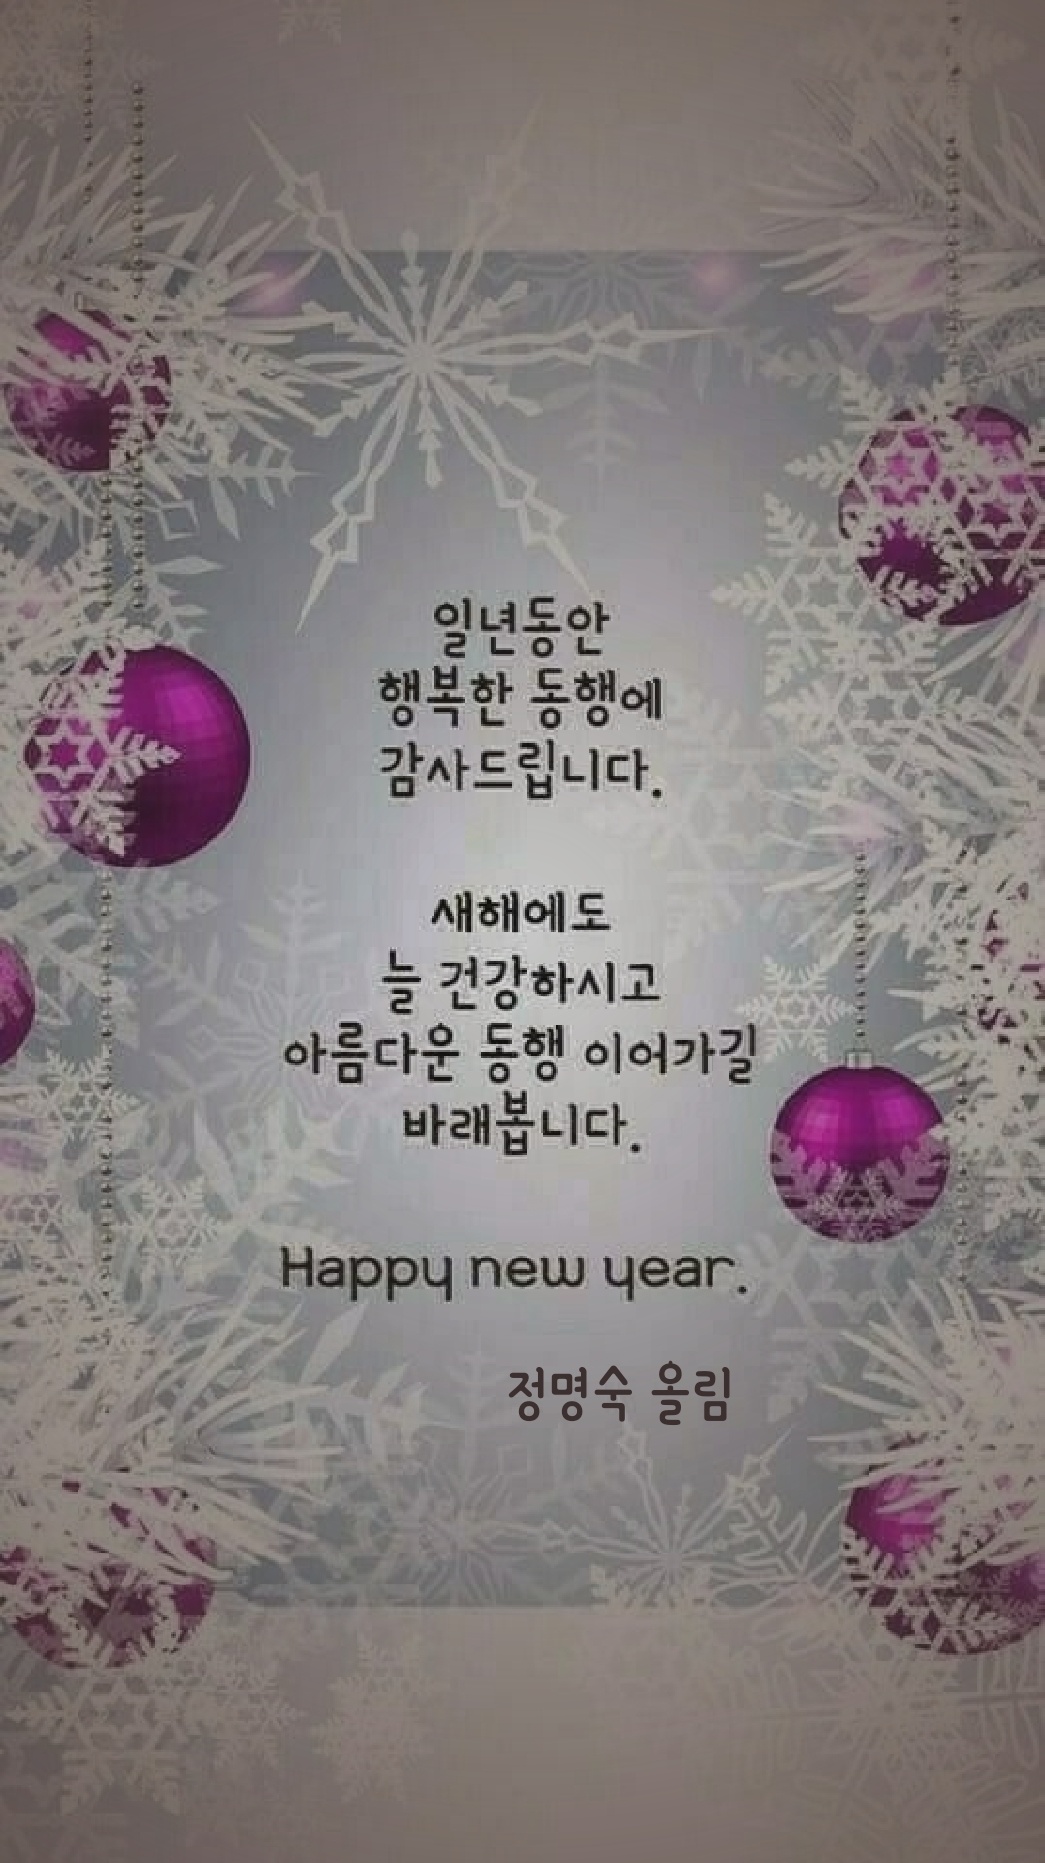 일년동안
행복한 동행에
감사드립니다.
새해에도
늘 건강하시고
아름다운 동행 이어가길
바래봅니다.
Happy new year.
정명숙 올림